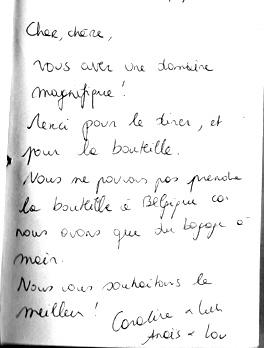 Cher, chère,
vous avez une domaine
magnifique!
Merci pour le diner, et
pour la bouteille.
Nous ne pouvons pas prendre
la bouteille à Bélgique car
nous avons que du bagage à
main.
Nous vous souhaitons le
meilleur!
Caroline
Anaïs + Lou